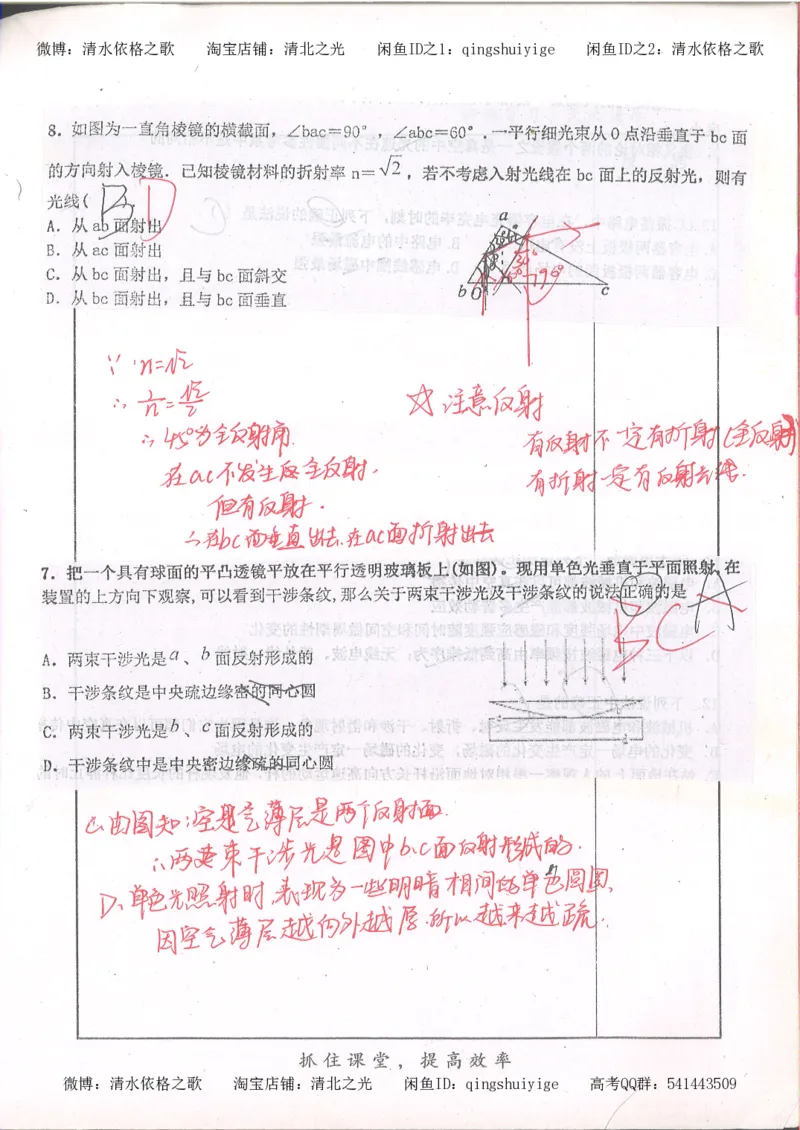 微博：清水依格之歌 淘宝店铺：清北之光 闲鱼ID之1：qingshuiyige 闲鱼ID之2：清水依格之歌
8．如图为一直角棱镜的横截面，∠bac=90°，∠abc=60°．一平行细光束从O点沿垂直于bc面
的方向射入棱镜．已知棱镜材料的折射率 n=√2，若不考虑入射光线在bc面上的反射光，则有
光线( B D
A．从ab面射出
B．从ac面射出
C．从bc面射出，且与bc面斜交
D．从bc面射出，且与bc面垂直
a
b O c
∵ n=√2
∴ 1/n=√2/2
∴45°为全反射角
在ac不发生 全反射．
但有反射．
∴在bc面垂直出去．在ac面折射出去
☆注意反射
有反射不一定有折射(全反射)
有折射一定有反射
7．把一个具有球面的平凸透镜平放在平行透明玻璃板上(如图)。现用单色光垂直于平面照射,在
装置的上方向下观察,可以看到干涉条纹,那么关于两束干涉光及干涉条纹的说法正确的是 A
A．两束干涉光是a、b面反射形成的
B．干涉条纹是中央疏边缘密的同心圆
C．两束干涉光是b、c面反射形成的
D．干涉条纹中是中央密边缘疏的同心圆
C．由图知：空气薄层是两个反射面．
∴两束干涉光是图中b.c面反射形成的．
D、单色光照射时．表现为一些明暗相间的单色圆圈、
因空气薄层越向外越厚．所以越来越疏．
抓住课堂，提高效率
微博：清水依格之歌 淘宝店铺：清北之光 闲鱼ID：qingshuiyige 高考QQ群：541443509